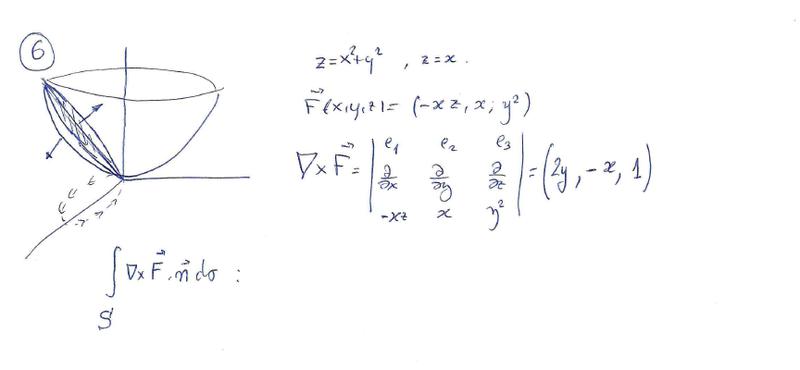 6
z=x²+y² , z=x.
F⃗(x,y,z)=(-xz, x, y²)
∇xF⃗ = | e₁ e₂ e₃ ; ∂/∂x ∂/∂y ∂/∂z ; -xz x y² | = (2y, -x, 1)
∫_S ∇xF⃗.n⃗ dσ :